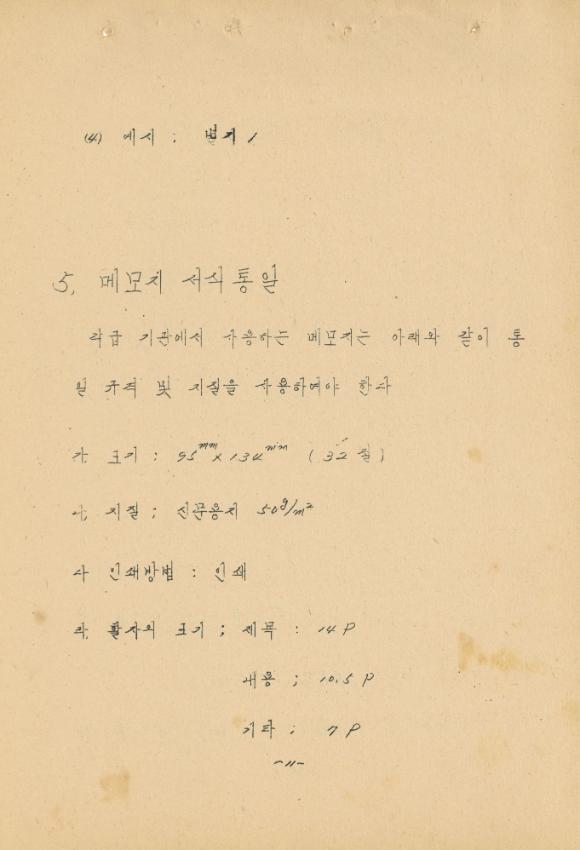 (4) 예시 ; 별지 1
5. 메모지 서식통일
각급 기관에서 사용하는 메모지는 아래와 같이 통
일 규격 및 지질을 사용하여야 한다
가. 크기 : 95mm x 134mm (32절)
나. 지질 ; 신문용지 50g/m²
다 인쇄방법 : 인쇄
라. 활자의 크기 ; 제목 : 14P
내용 ; 10.5 P
기타 ; 7 P
-11-